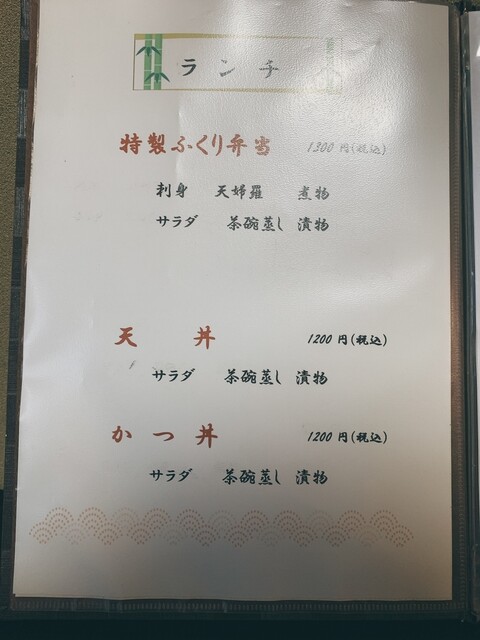 ランチ
特製ふくり弁当 1300円(税込)
刺身 天婦羅 煮物
サラダ 茶碗蒸し 漬物
天丼 1200円(税込)
サラダ 茶碗蒸し 漬物
かつ丼 1200円(税込)
サラダ 茶碗蒸し 漬物